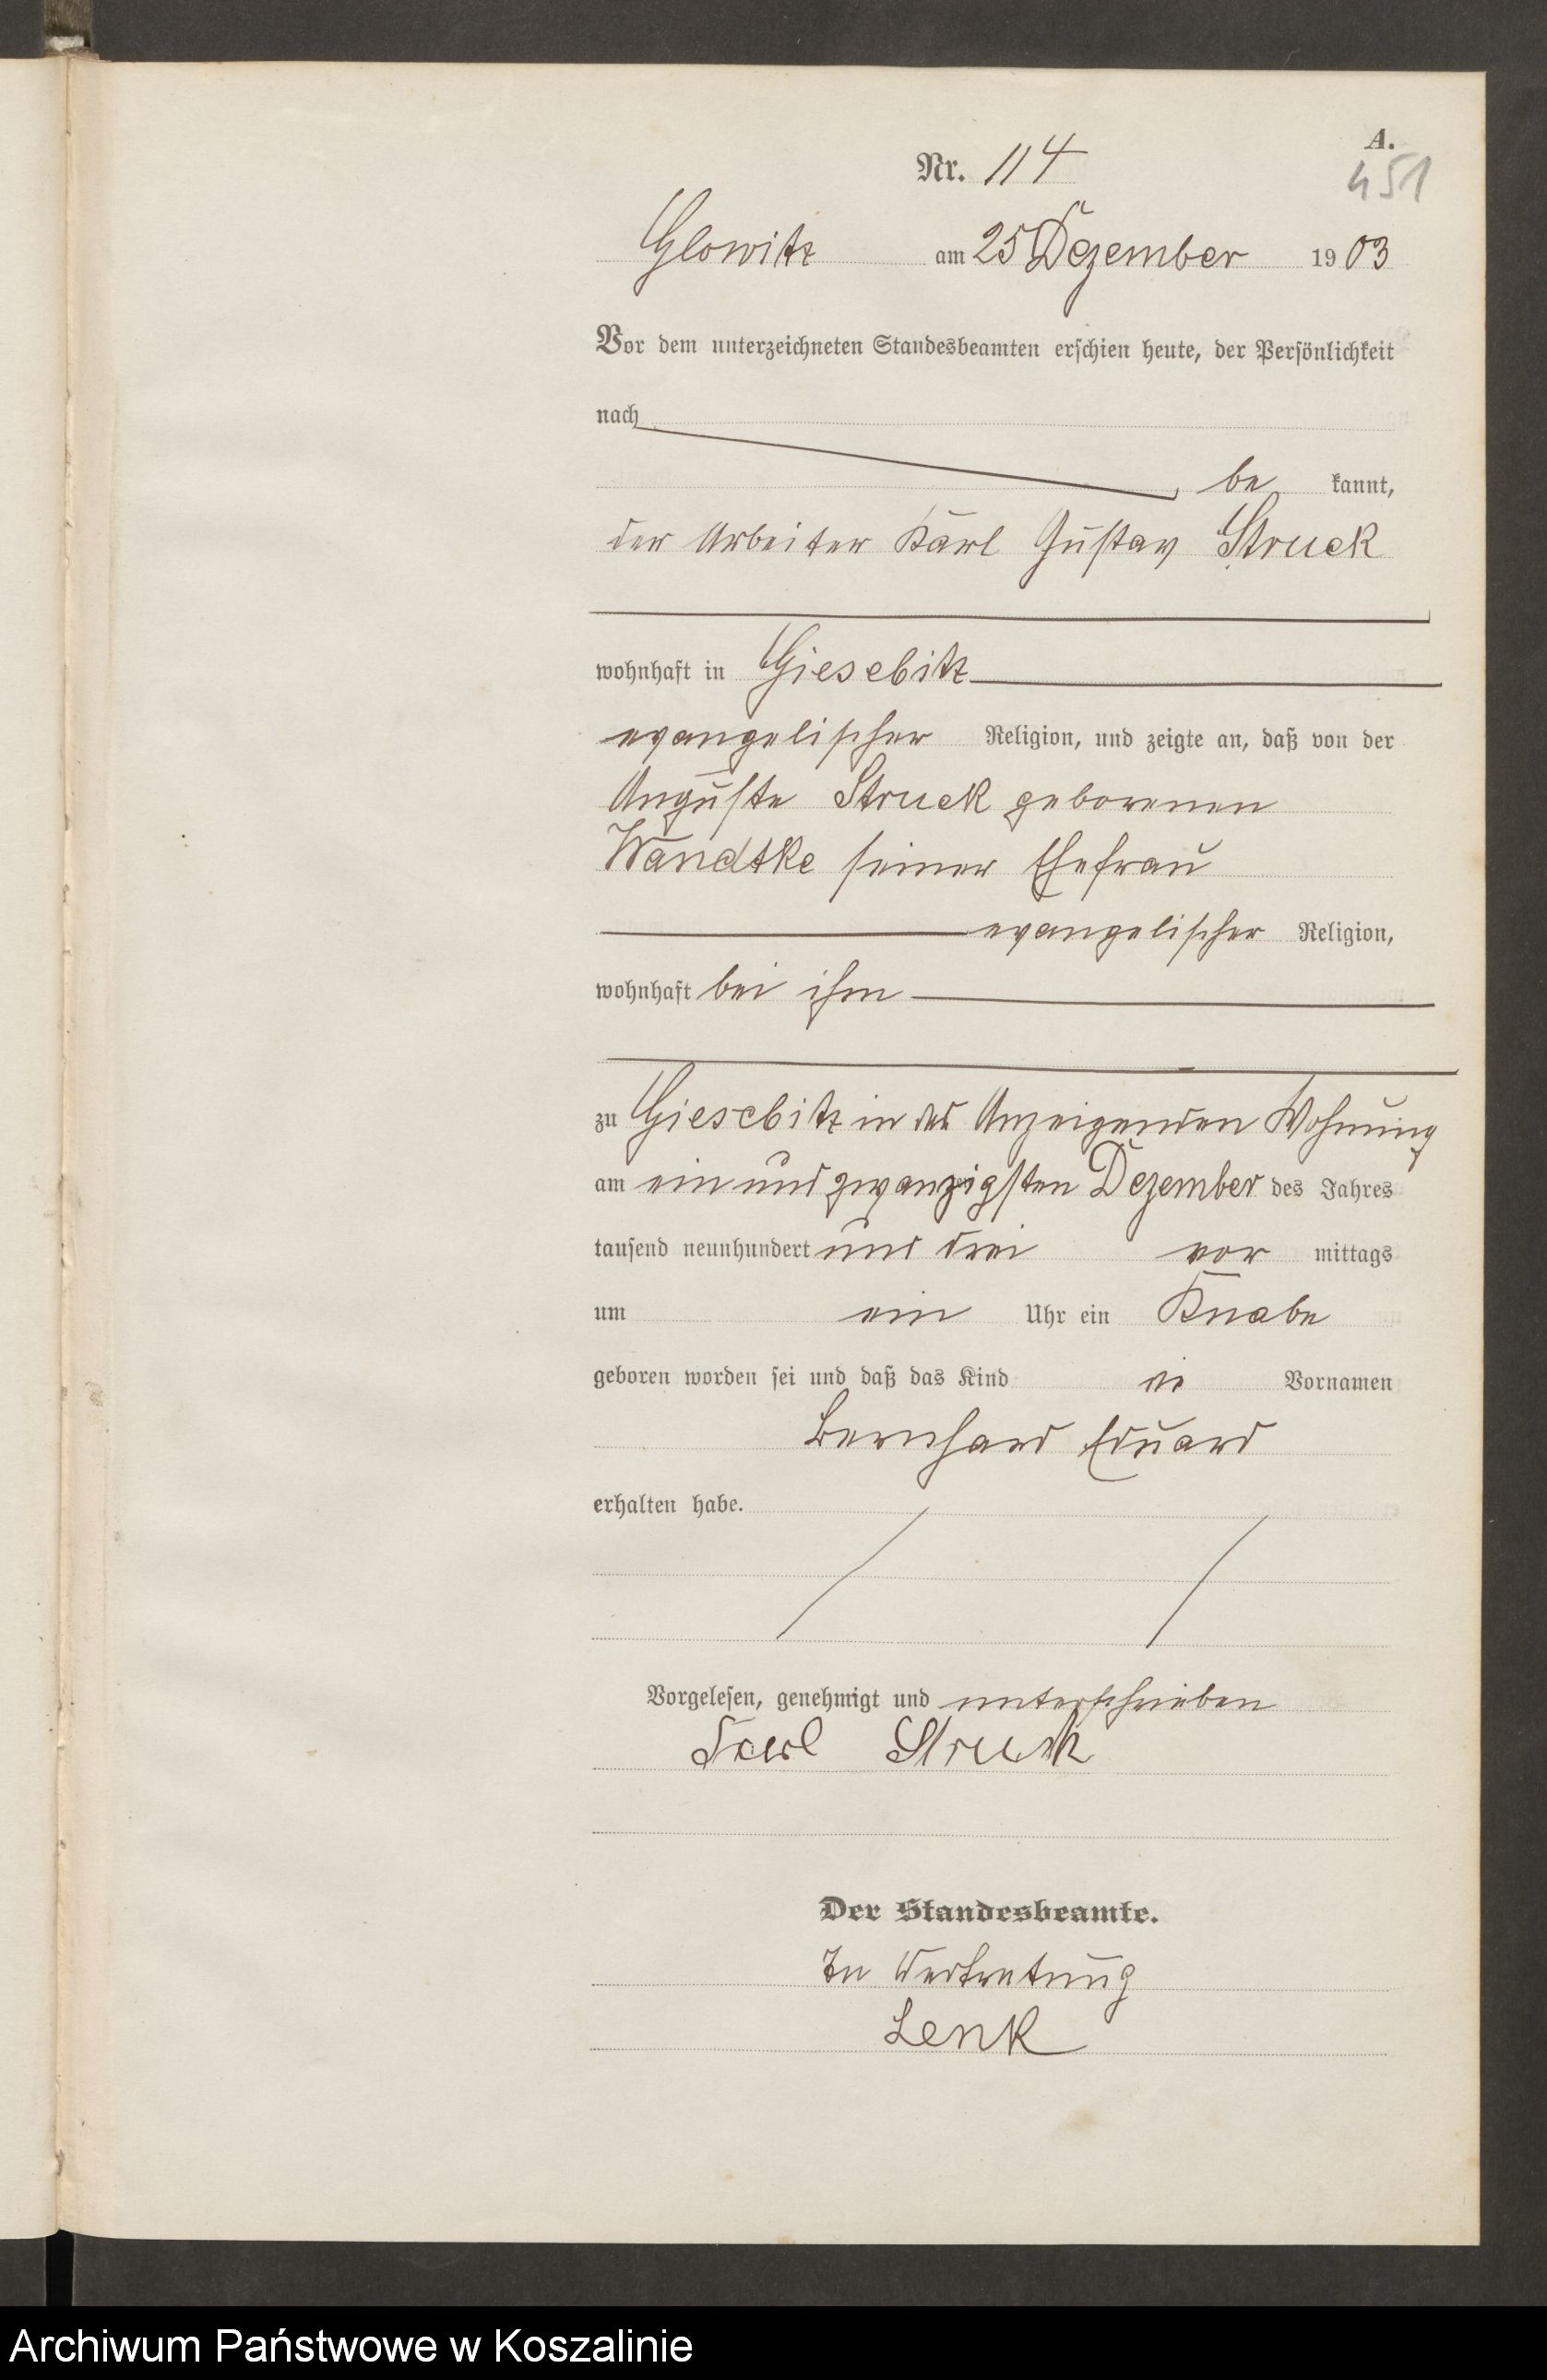 A.
Nr. 114
451
Glowitz am 25 Dezember 1903
Vor dem unterzeichneten Standesbeamten erschien heute, der Persönlichkeit
nach
be kannt,
der Arbeiter Karl Gustav Struck
wohnhaft in Giesebitz
evangelischer Religion, und zeigte an, daß von der
Auguste Struck geborenen
Wandtke seiner Ehefrau
evangelischer Religion,
wohnhaft bei ihm
zu Giesebitz in des Anzeigenden Wohnung
am ein und zwanzigsten Dezember des Jahres
tausend neunhundert und drei vor mittags
um ein Uhr ein Knabe
geboren worden sei und daß das Kind die Vornamen
Bernhard Eduard
erhalten habe.
Vorgelesen, genehmigt und unterschrieben
Karl Struck
Der Standesbeamte.
In Vertretung
Lenk
Archiwum Państwowe w Koszalinie